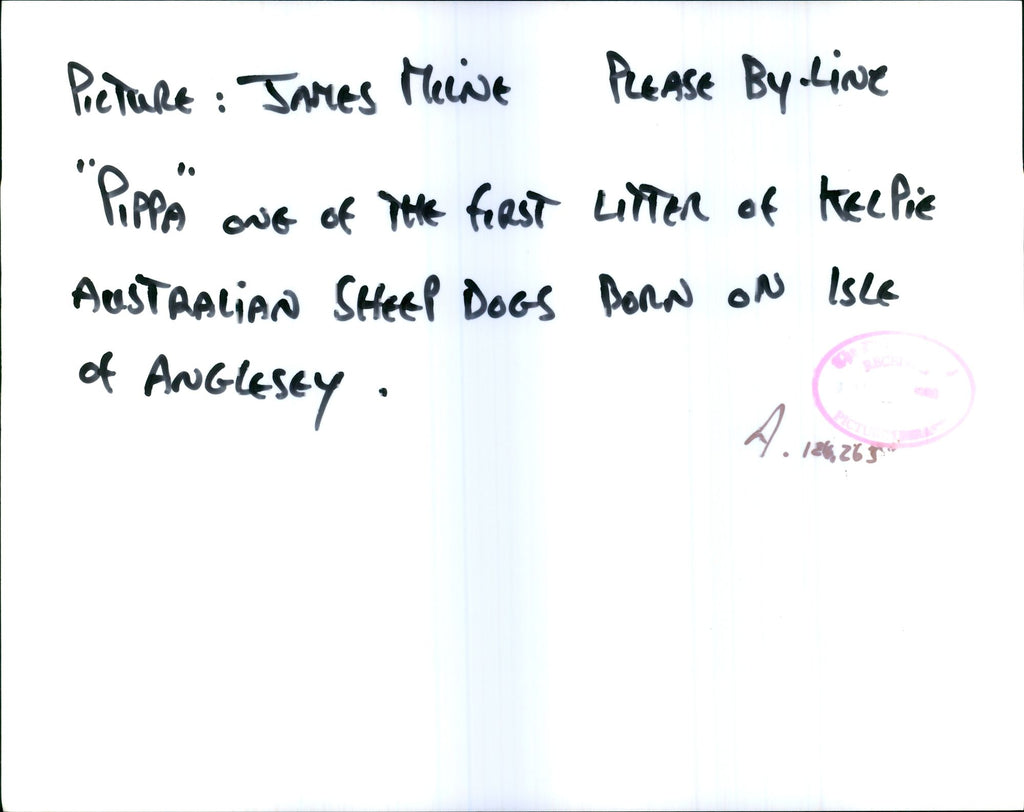 PICTURE : JAMES MILNE PLEASE BY-LINE
"PIPPA" ONE OF THE FIRST LITTER OF KELPIE
AUSTRALIAN SHEEP DOGS BORN ON ISLE
OF ANGLESEY .
RECEIVED
PICTURE LIBRARY
A. 126,265